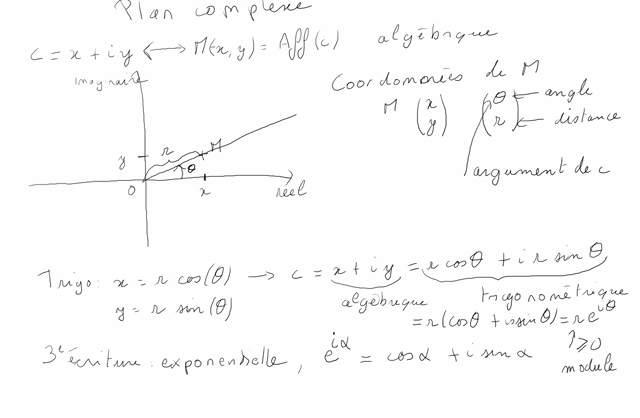 Plan complexe
c = x + iy ⟷ M(x, y) = Aff(c) algébrique
imaginaire
Coordonnées de M
M (x y) (θ r) ← angle ← distance
argument de c
y r M
θ
0 x réel
Trigo: x = r cos(θ) → c = x + iy = r cosθ + i r sinθ
y = r sin(θ) algébrique trigonométrique
= r(cosθ + i sinθ) = r e^{iθ}
3e écriture : exponentielle, e^{iα} = cosα + i sinα ≥0
module